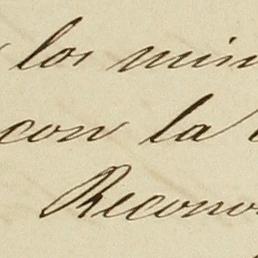 los min
con la
Recono